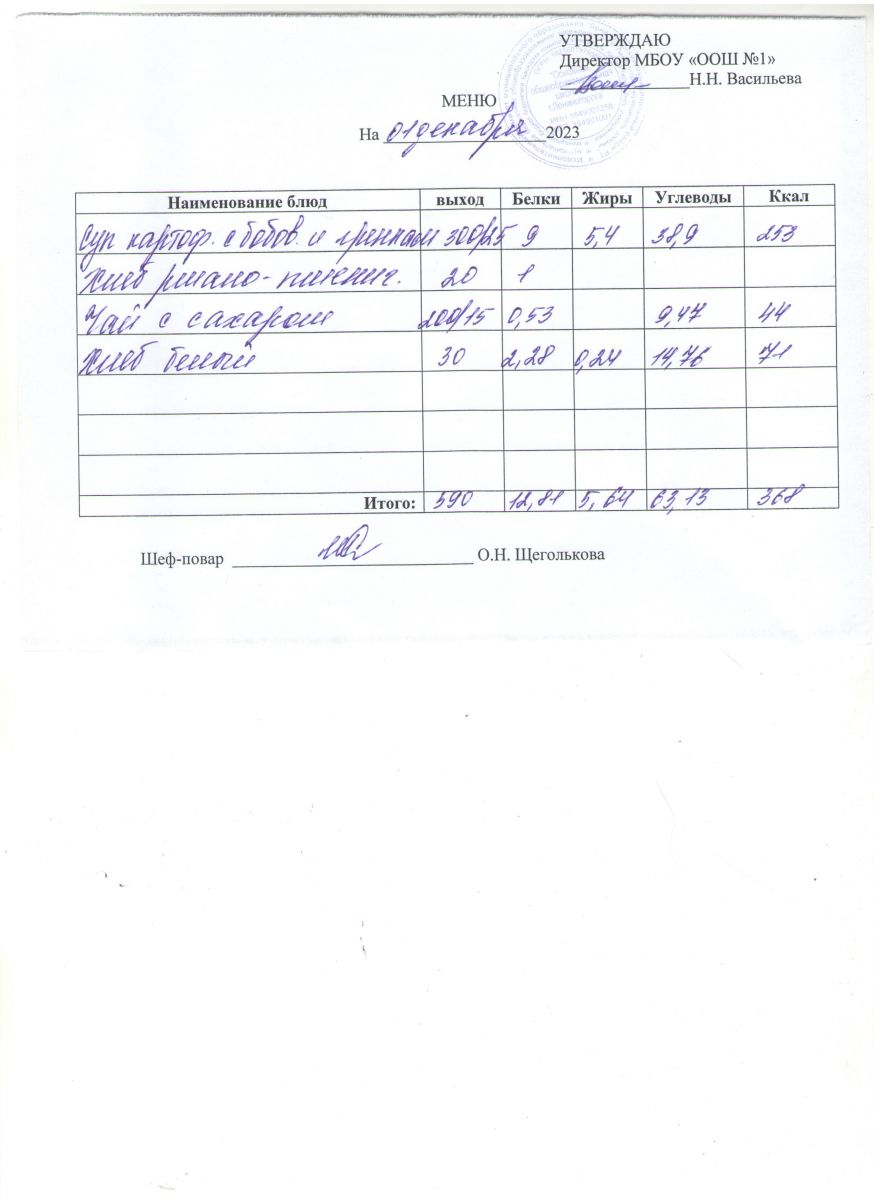 УТВЕРЖДАЮ
Директор МБОУ «ООШ №1»
Н.Н. Васильева
МЕНЮ
На 01 декабря 2023
Наименование блюд выход Белки Жиры Углеводы Ккал
Суп картоф. с бобов. и гренками 300/25 9 5,4 38,9 253
Хлеб ржано-пшенич. 20 1
Чай с сахаром 200/15 0,53 9,47 44
Хлеб белый 30 2,28 0,24 14,76 71
Итого: 590 12,81 5,64 63,13 368
Шеф-повар О.Н. Щеголькова